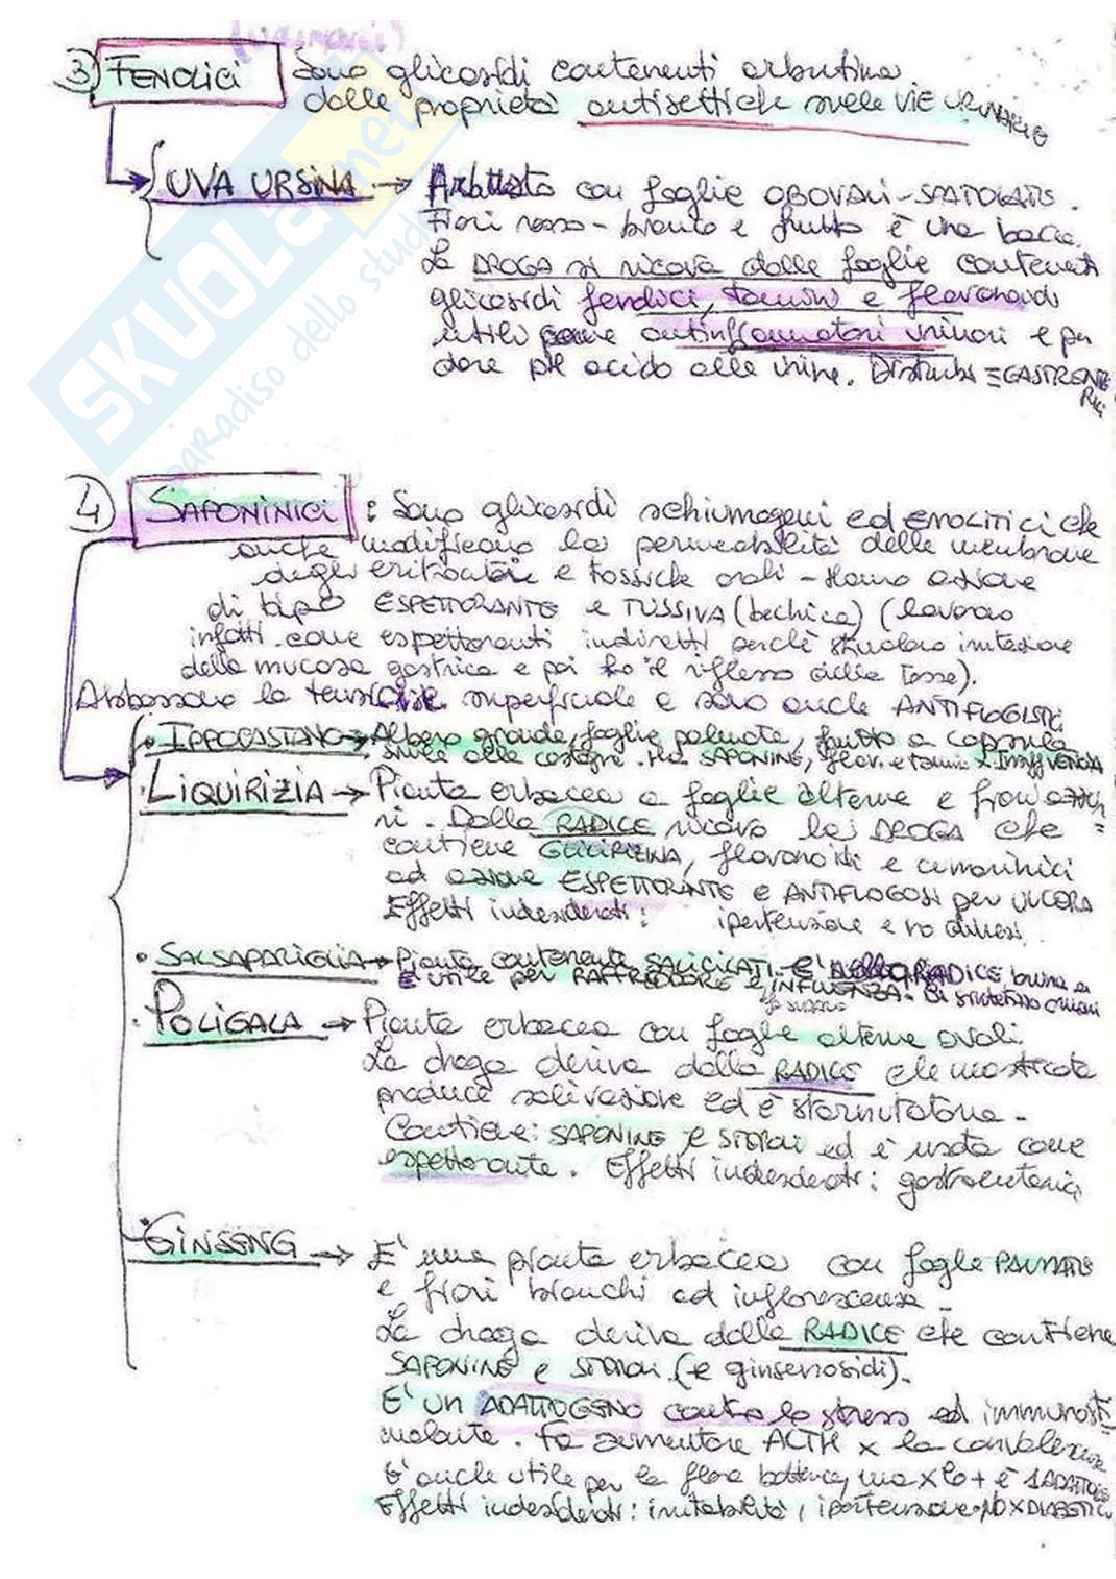 (urinari)
3) FENOLICI Sono glicosidi contenenti arbutina
dalle proprietà antisettiche sulle VIE URINARIE
UVA URSINA → Arbusto con foglie OBOVALI-SPATOLATE.
Fiori rosso-bianco e frutto è una bacca.
La DROGA si ricava dalle foglie contenenti
glicosidi fenolici, tannini e flavonoidi
utili come antinfiammatori urinari e per
dare pH acido alle urine. Disturbi = GASTROENTE
RICI
4) SAPONINICI : Sono glicosidi schiumogeni ed EMOLITICI che
anche modificano la permeabilità delle membrane
degli eritrociti e tossiche orali - Hanno azione
di tipo ESPETTORANTE e TUSSIVA (bechica) (lavorano
infatti come espettoranti indiretti perchè stimolano irritazione
della mucosa gastrica e poi ho il riflesso della tosse).
Abbassano la tensione superficiale e sono anche ANTIFLOGISTICI
• IPPOCASTANO → Albero grande, foglie palmate, frutto a capsula
simile alle castagne. Ha SAPONINE, flav. e tannini x INSUFF VENOSA
• LIQUIRIZIA → Pianta erbacea a foglie alterne e fiori azzur
ri. Dalla RADICE ricavo la DROGA che =
contiene GLICIRIZINA, flavonoidi e cumarinici
ad azione ESPETTORANTE e ANTIFLOGOSI per ULCERA
Effetti indesiderati: ipertensione e no diuresi.
• SALSAPARIGLIA → Pianta contenente SALICILATI. E' nella RADICE bruna
E' UTILE per RAFFREDDORE e INFLUENZA.
• POLIGALA → Pianta erbacea con foglie alterne ovali.
La droga deriva dalla RADICE che masticata
produce salivazione ed è starnutatoria.
Contiene: SAPONINE e STEROLI ed è usata come
espettorante. Effetti indesiderati: gastroenteria
• GINSENG → E' una pianta erbacea con foglie PALMATE
e fiori bianchi ad inflorescenza.
La droga deriva dalla RADICE che contiene
SAPONINE e STEROLI (e ginsenosidi).
E' UN ADATTOGENO contro lo stress ed immunosti
molante. Fa aumentare ACTH x la convalescenza
E' anche utile per la flora batterica, ma x lo + è ADATTOG
Effetti indesiderati: irritabilità, ipertensione. NO x DIABETICI
SKUOLA.net
paradiso dello stud